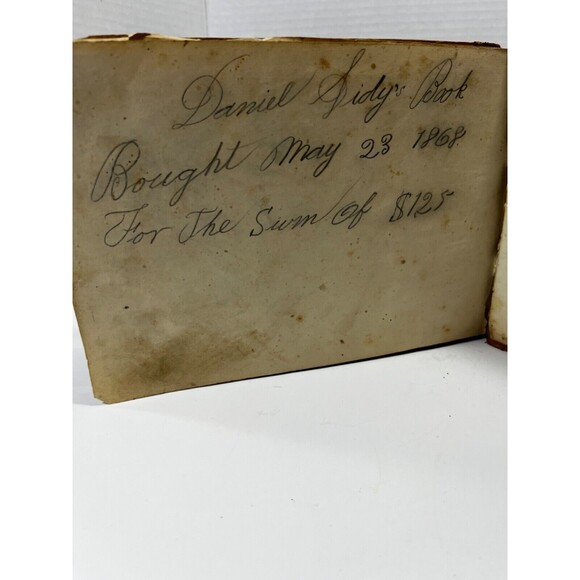 Daniel Sidy's Book
Bought May 23 1868
For The Sum Of $125